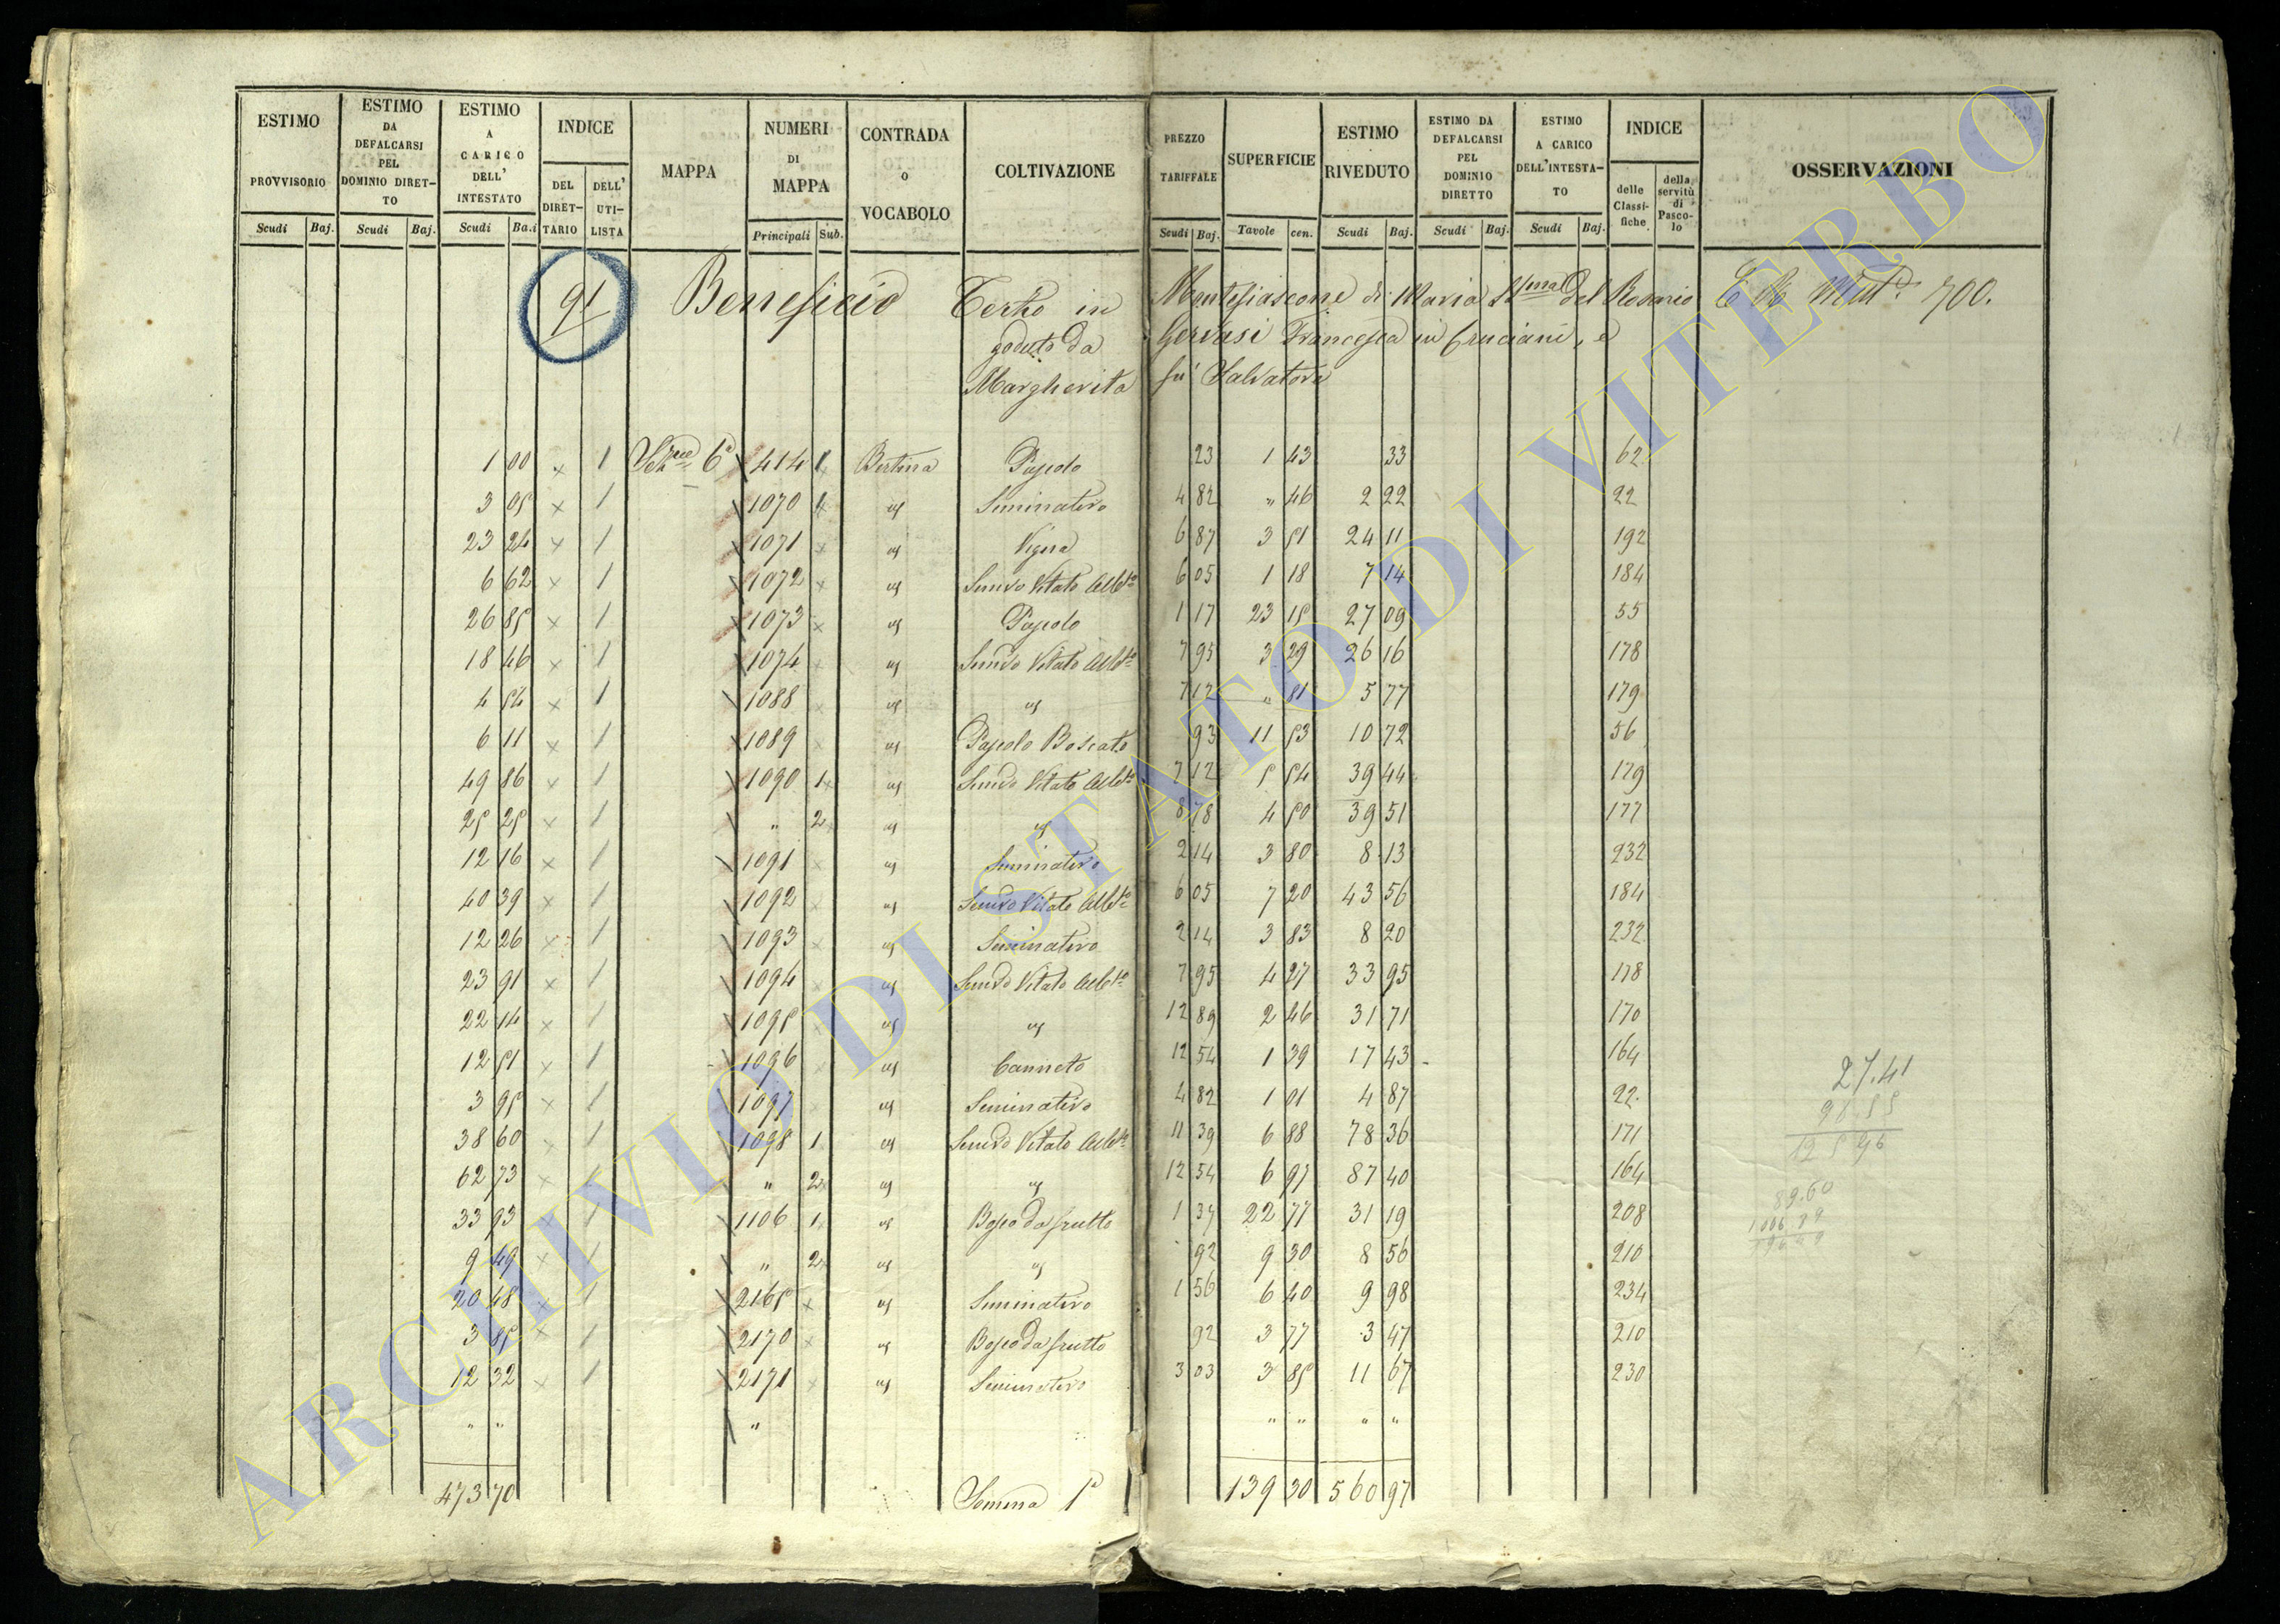 ESTIMO PROVVISORIO Scudi Baj.
ESTIMO DA DEFALCARSI PEL DOMINIO DIRET-TO Scudi Baj.
ESTIMO A CARICO DELL' INTESTATO Scudi Ba.i
INDICE DEL DIRET-TARIO DELL' UTI-LISTA
MAPPA
NUMERI DI MAPPA Principali Sub.
CONTRADA O VOCABOLO
COLTIVAZIONE
PREZZO TARIFFALE Scudi Baj.
SUPERFICIE Tavole cen.
ESTIMO RIVEDUTO Scudi Baj.
ESTIMO DA DEFALCARSI PEL DOMINIO DIRETTO Scudi Baj.
ESTIMO A CARICO DELL'INTESTA-TO Scudi Baj.
INDICE delle Classi-fiche della servitù di Pasco-lo
OSSERVAZIONI
91 Beneficio Eretto in Montefiascone di Maria SSma del Rosario 700.
goduto da Gervasi Francesca in Cruciani, e
Margherita fu Salvatore
1 00 x 1 6a 414 1 Bertina Pascolo 23 1 43 33 62
3 05 x 1 1070 us Seminativo 4 82 " 46 2 22 22
23 24 x 1 1071 x us Vigna 6 87 3 51 24 11 192
6 62 x 1 1072 x us Semvo Vitato Albto 6 05 1 18 7 14 184
26 85 x 1 1073 x us Pascolo 1 17 23 15 27 09 55
18 46 x 1 1074 x us Semvo Vitato Albto 7 95 3 29 26 16 178
4 54 x 1 1088 x us us 7 12 " 81 5 77 179
6 11 x 1 1089 x us Pascolo Boscato 93 11 53 10 72 56
49 86 x 1 1090 1x us Semvo Vitato Albto 7 12 5 54 39 44 179
25 25 x 1 " 2x us us 8 78 4 50 39 51 177
12 16 x 1 1091 x us Seminativo 2 14 3 80 8 13 232
40 39 x 1 1092 x us Semvo Vitato Albto 6 05 7 20 43 56 184
12 26 x 1 1093 x us Seminativo 2 14 3 83 8 20 232
23 91 x 1 1094 x us Semvo Vitato Albto 7 95 4 27 33 95 178
22 14 x 1 1095 x us us 12 89 2 46 31 71 170
12 51 x 1 1096 x us Canneto 12 54 1 39 17 43 164
3 95 x 1 1097 x us Seminativo 4 82 1 01 4 87 22
38 60 x 1 1098 1 us Semvo Vitato Albto 11 39 6 88 78 36 171
62 73 x 1 " 2x us us 12 54 6 97 87 40 164
33 93 x 1 1106 1 us Bosco da frutto 1 37 22 77 31 19 208
9 49 x 1 " 2x us us 92 9 30 8 56 210
20 48 x 1 2165 x us Seminativo 1 56 6 40 9 98 234
3 85 x 1 2170 x us Bosco da frutto 92 3 77 3 47 210
12 32 x 1 2171 x us Seminativo 3 03 3 85 11 67 230
" " " " " " "
473 70 Somma 1a 139 30 560 97
27.41
98.55
125 96
89.60
ARCHIVIO DI STATO DI VITERBO